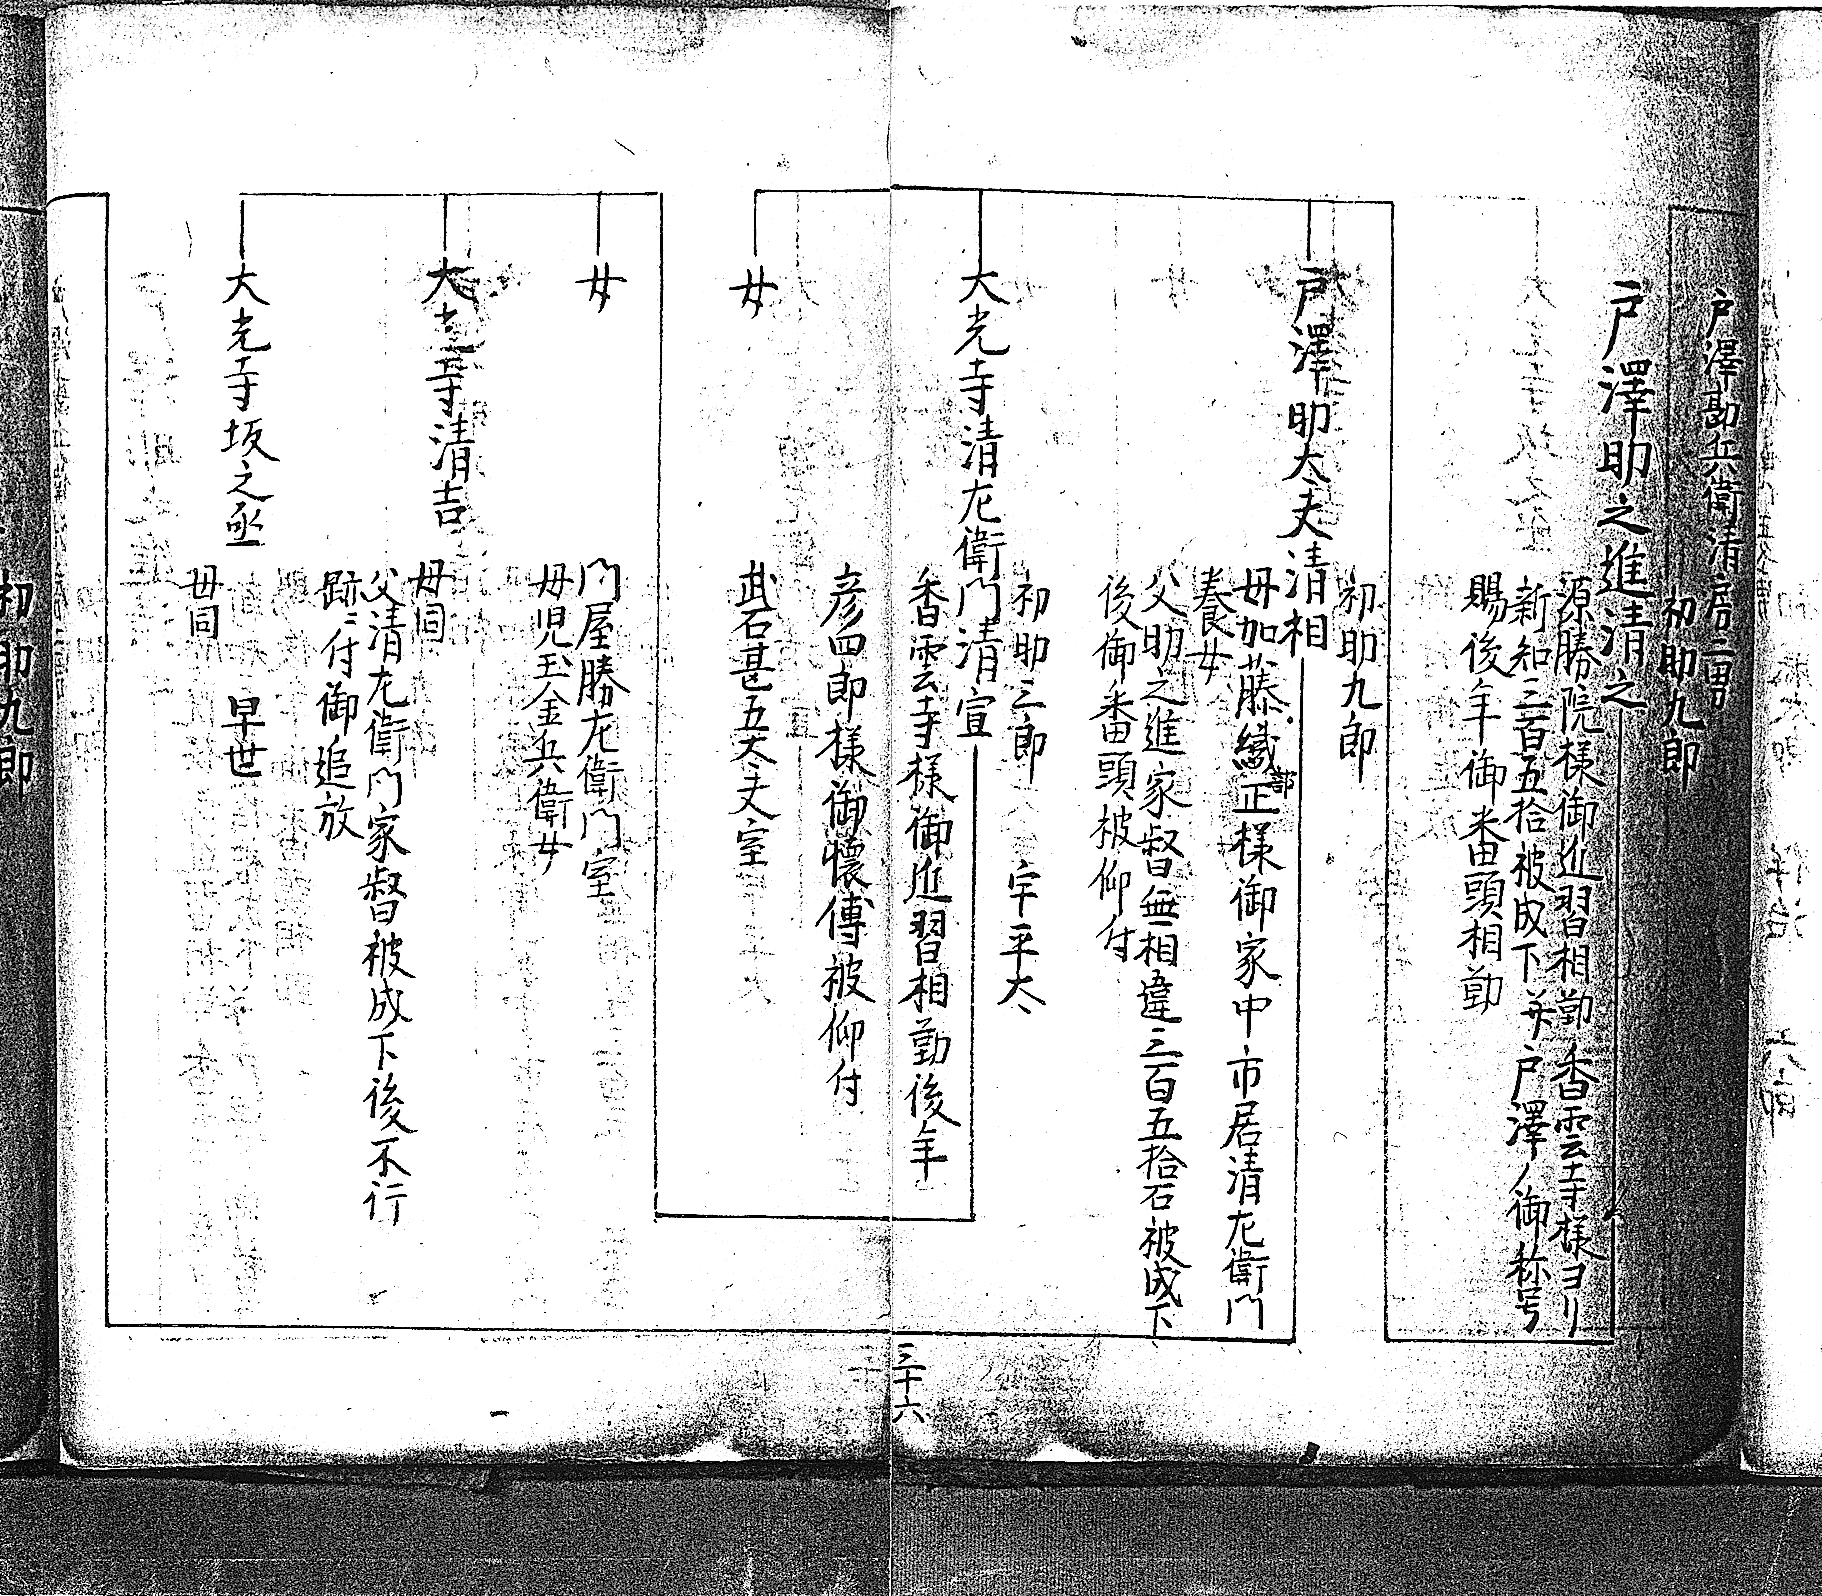 戸澤勘兵衛清房二男
初助九郎
戸澤助之進清之
源勝院様御近習相勤香雲寺様ヨリ
新知三百五拾被成下并戸澤ノ御称号
賜後年御番頭相勤
初助九郎
戸澤助太夫清相
母加藤織部正様御家中市居清左衛門
養女
父助之進家督無相違三百五拾石被成下
後御番頭被仰付
初助三郎 宇平太
大光寺清左衛門清宣
香雲寺様御近習相勤後年
彦四郎様御懐傳被仰付
女
武石甚五太夫室
女
門屋勝左衛門室
母児玉金兵衛女
大光寺清吉
母同
父清左衛門家督被成下後不行
跡ニ付御追放
大光寺坂之丞
早世
母同
三十六
初助九郎